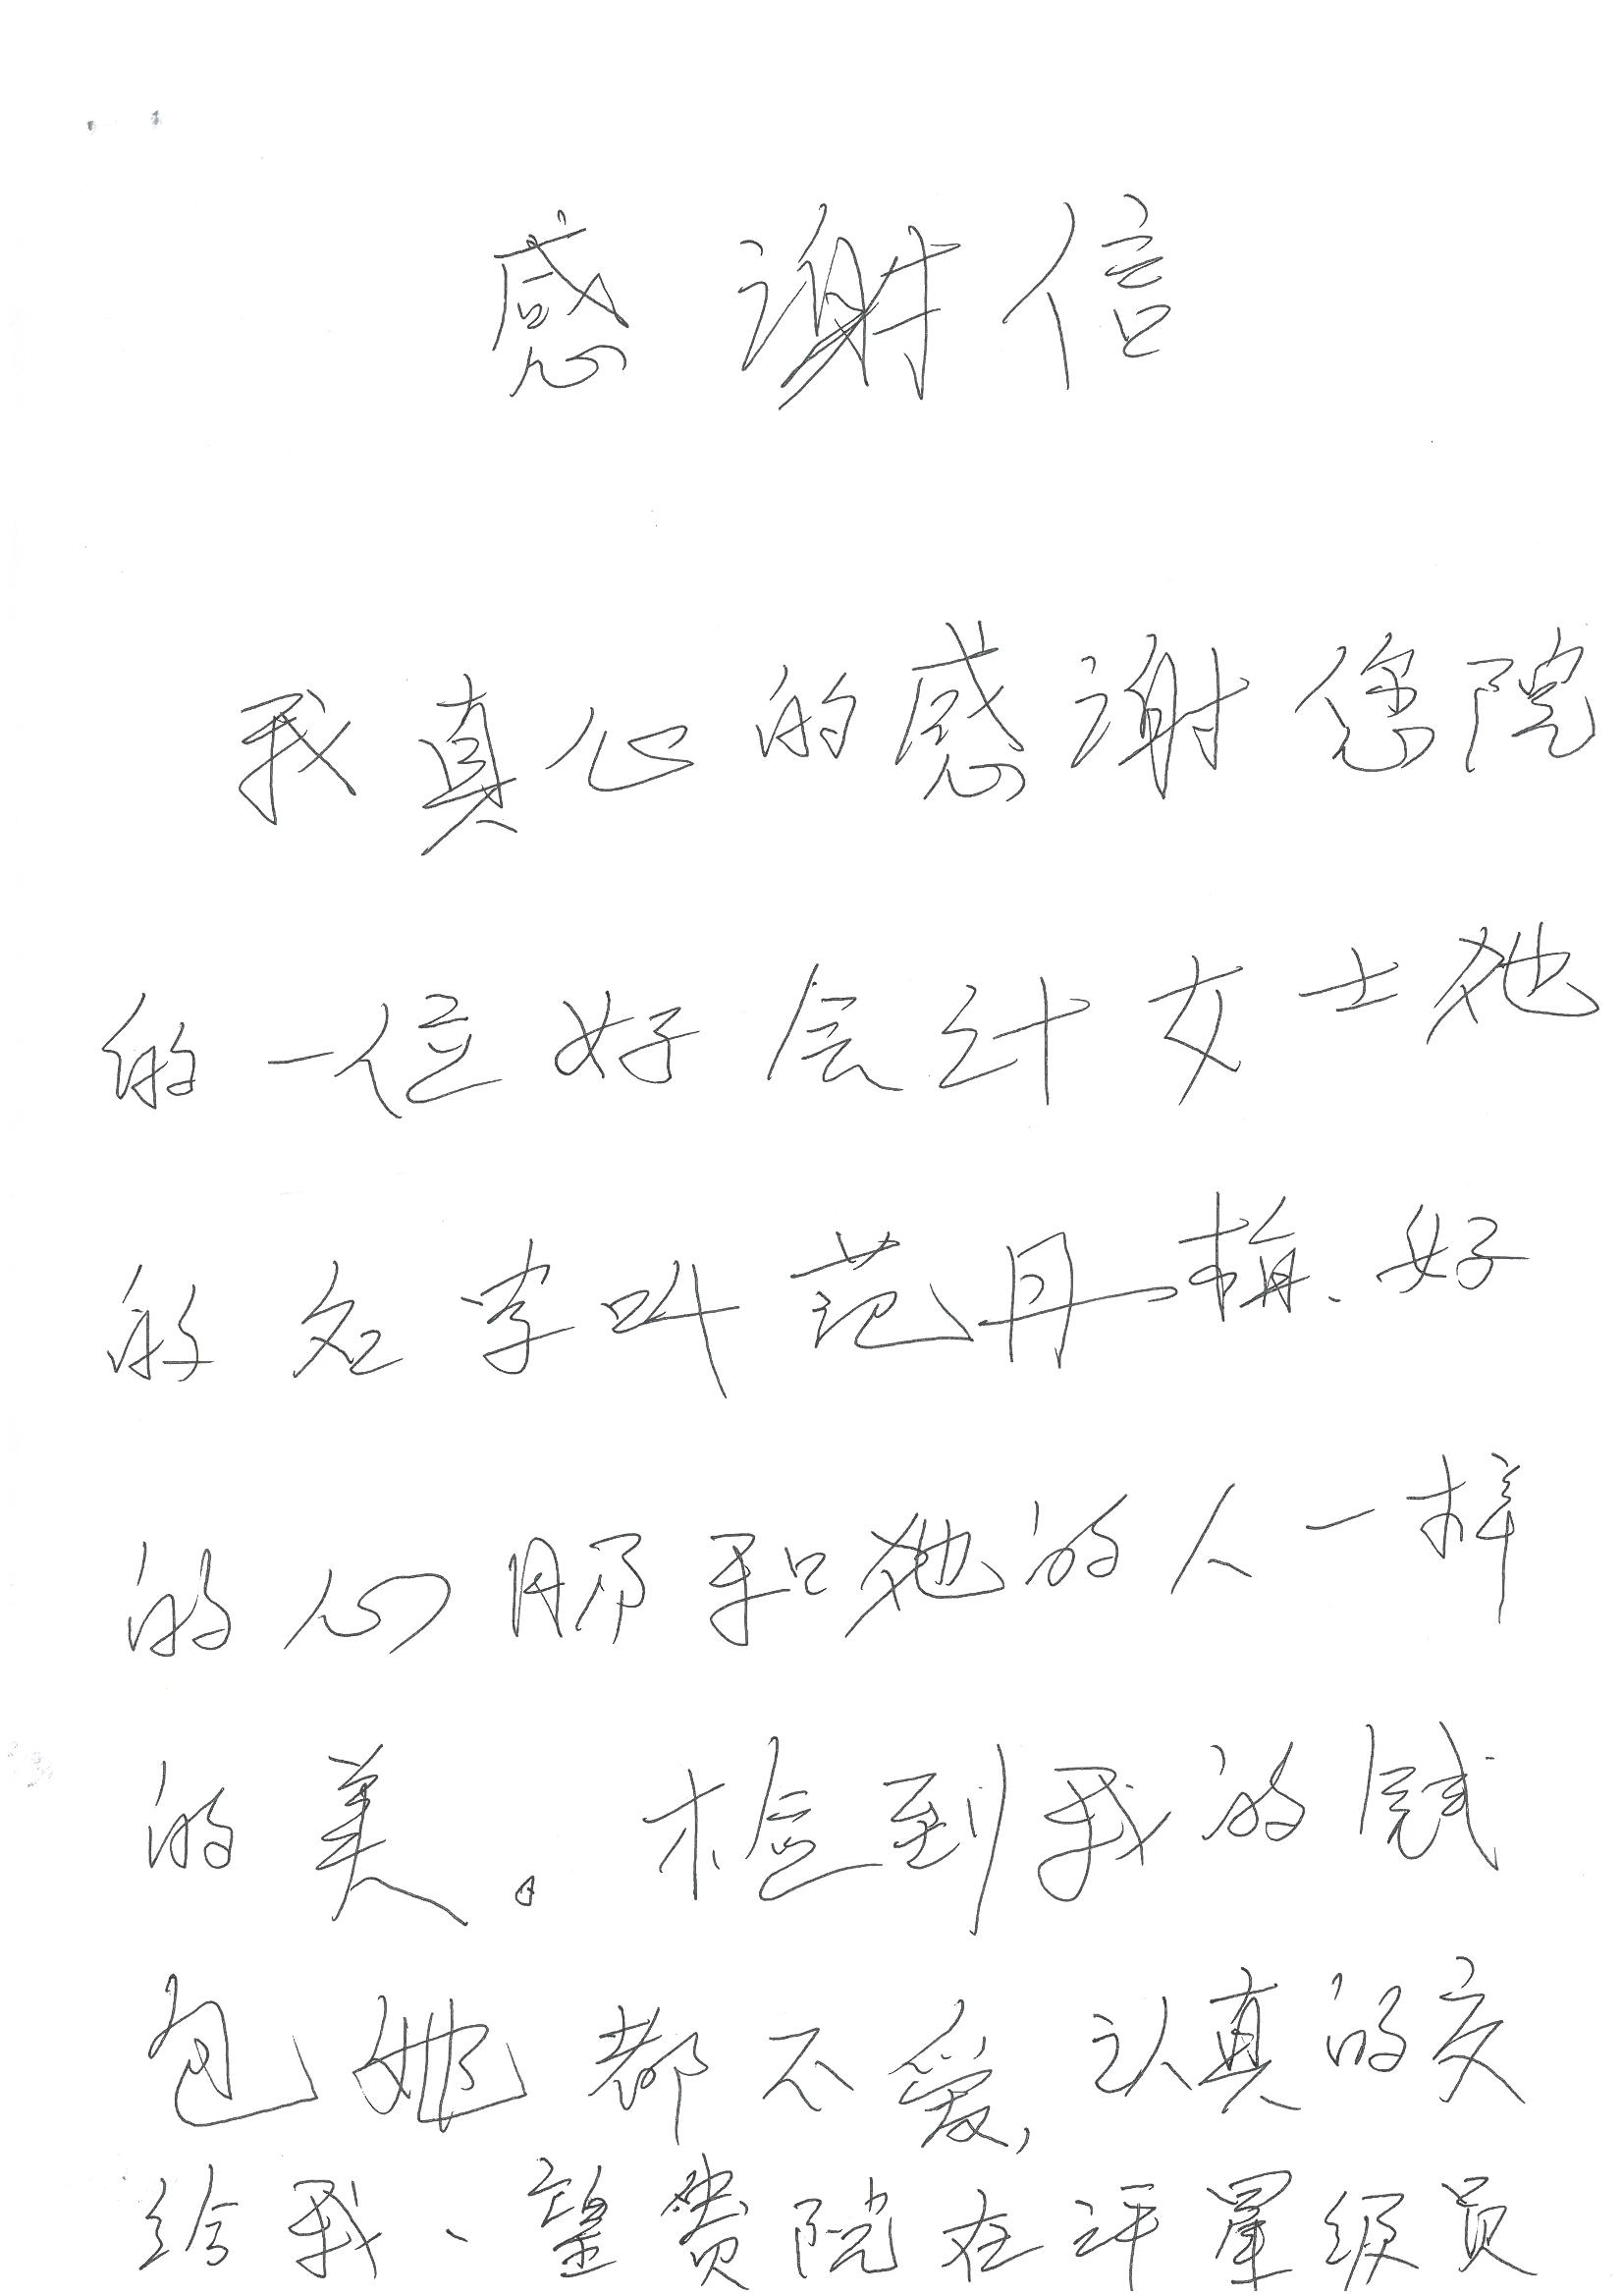 感谢信
我真心的感谢您院
的一位好会计女士她
的名字叫范丹梅、好
的心肠和她的人一样
的美。检到我的钱
包她都不爱,认真的交
给我、望贵院在评奖级员